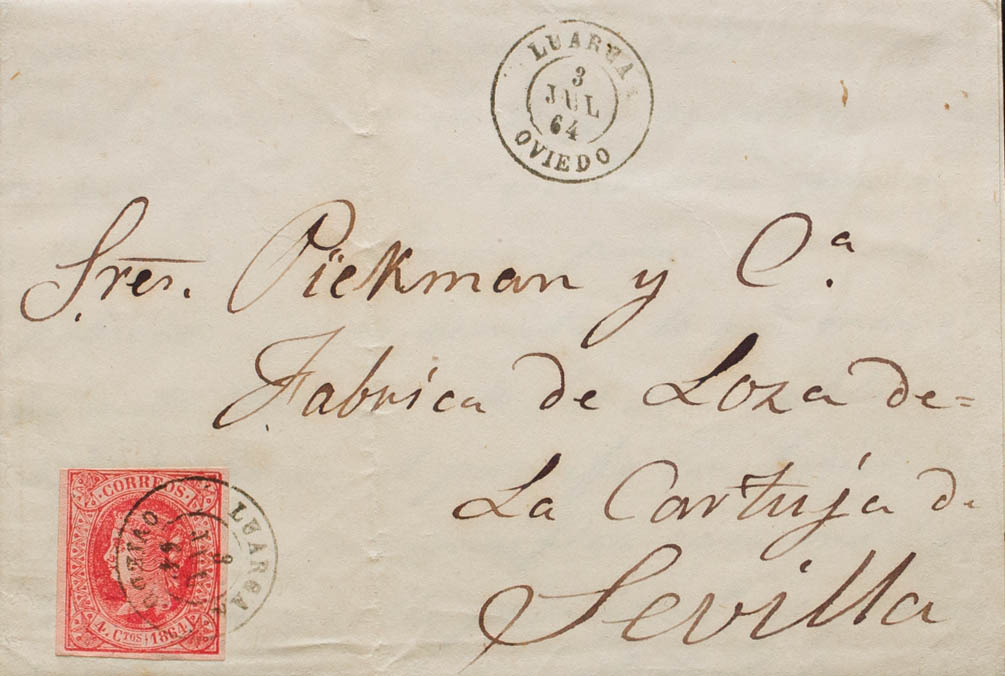 LUARCA
3
JUL
64
OVIEDO
Sres. Pickman y Cª.
Fabrica de Loza de=
La Cartuja de
Sevilla
CORREOS.
4. CTOS. 1864.
LUARCA
OVIEDO